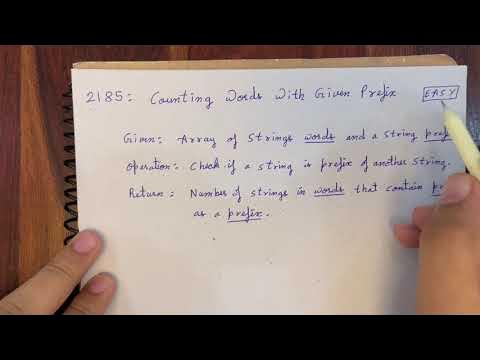 2185: Counting Words With Given Prefix EASY
Given: Array of strings words and a string
Operation: Check if a string is prefix of another string.
Return: Number of strings in words that contain
as a prefix.